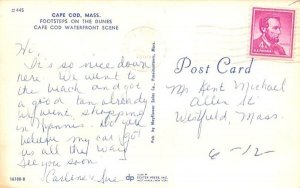 □445
CAPE COD, MASS.
FOOTSTEPS ON THE DUNES
CAPE COD WATERFRONT SCENE
Hi
It's so nice down
here. We went to
the beach and got
a good tan already
went shopping
in Hyannis. Do you
believe my car got
us all the way
See you soon
Carlene & Sue
16788-B
Pub. by Mayflower Sales Co., Provincetown, Mass.
dp
DEXTER PRESS, INC.
WEST NYACK, NEW YORK
4¢
Post Card
Mr Kent Michael
Allen St
Westfield, Mass.
6-12